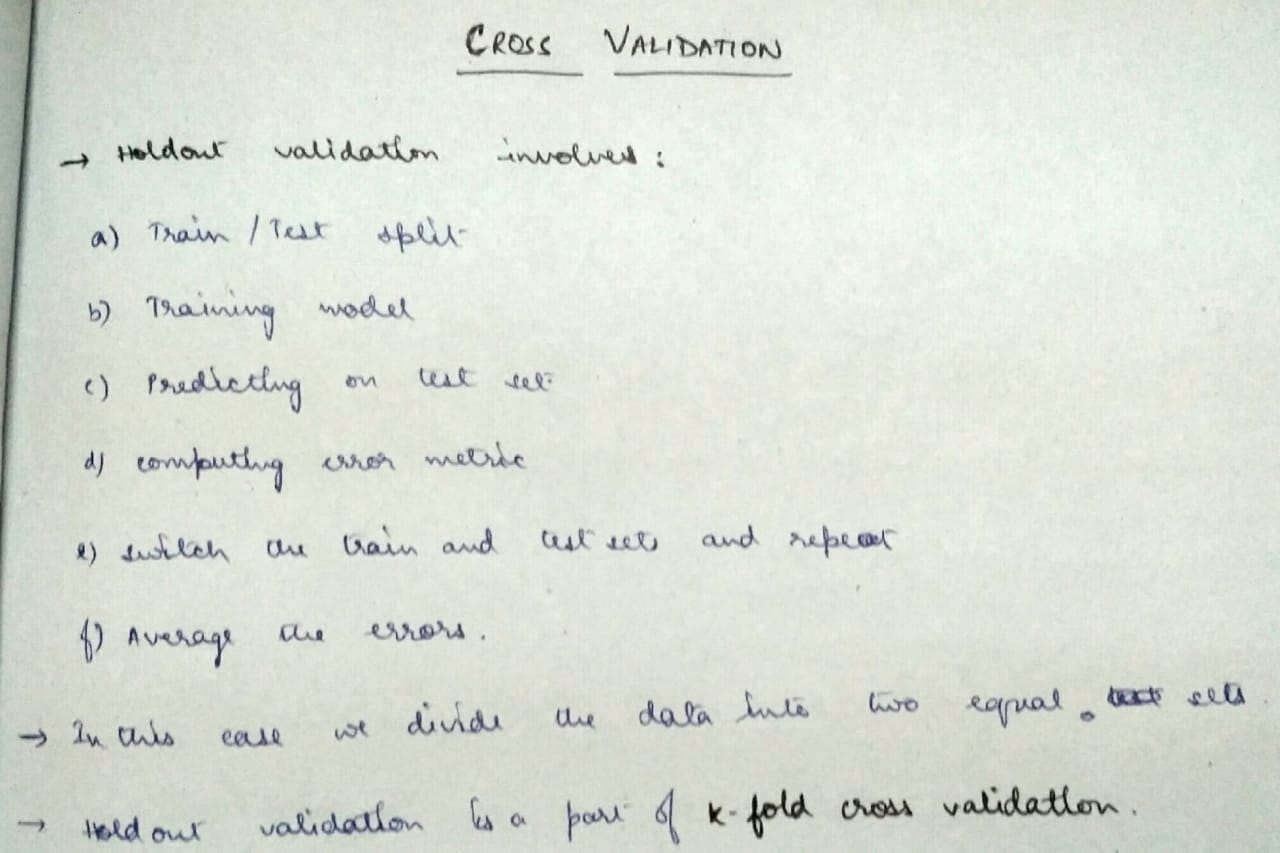 CROSS VALIDATION
→ Holdout validation involves :
a) Train / Test split
b) Training model
c) Predicting on test set
d) computing error metric
e) switch the train and test sets and repeat
f) Average the errors.
→ In this case we divide the data into two equal sets.
→ Hold out validation is a part of K-fold cross validation.